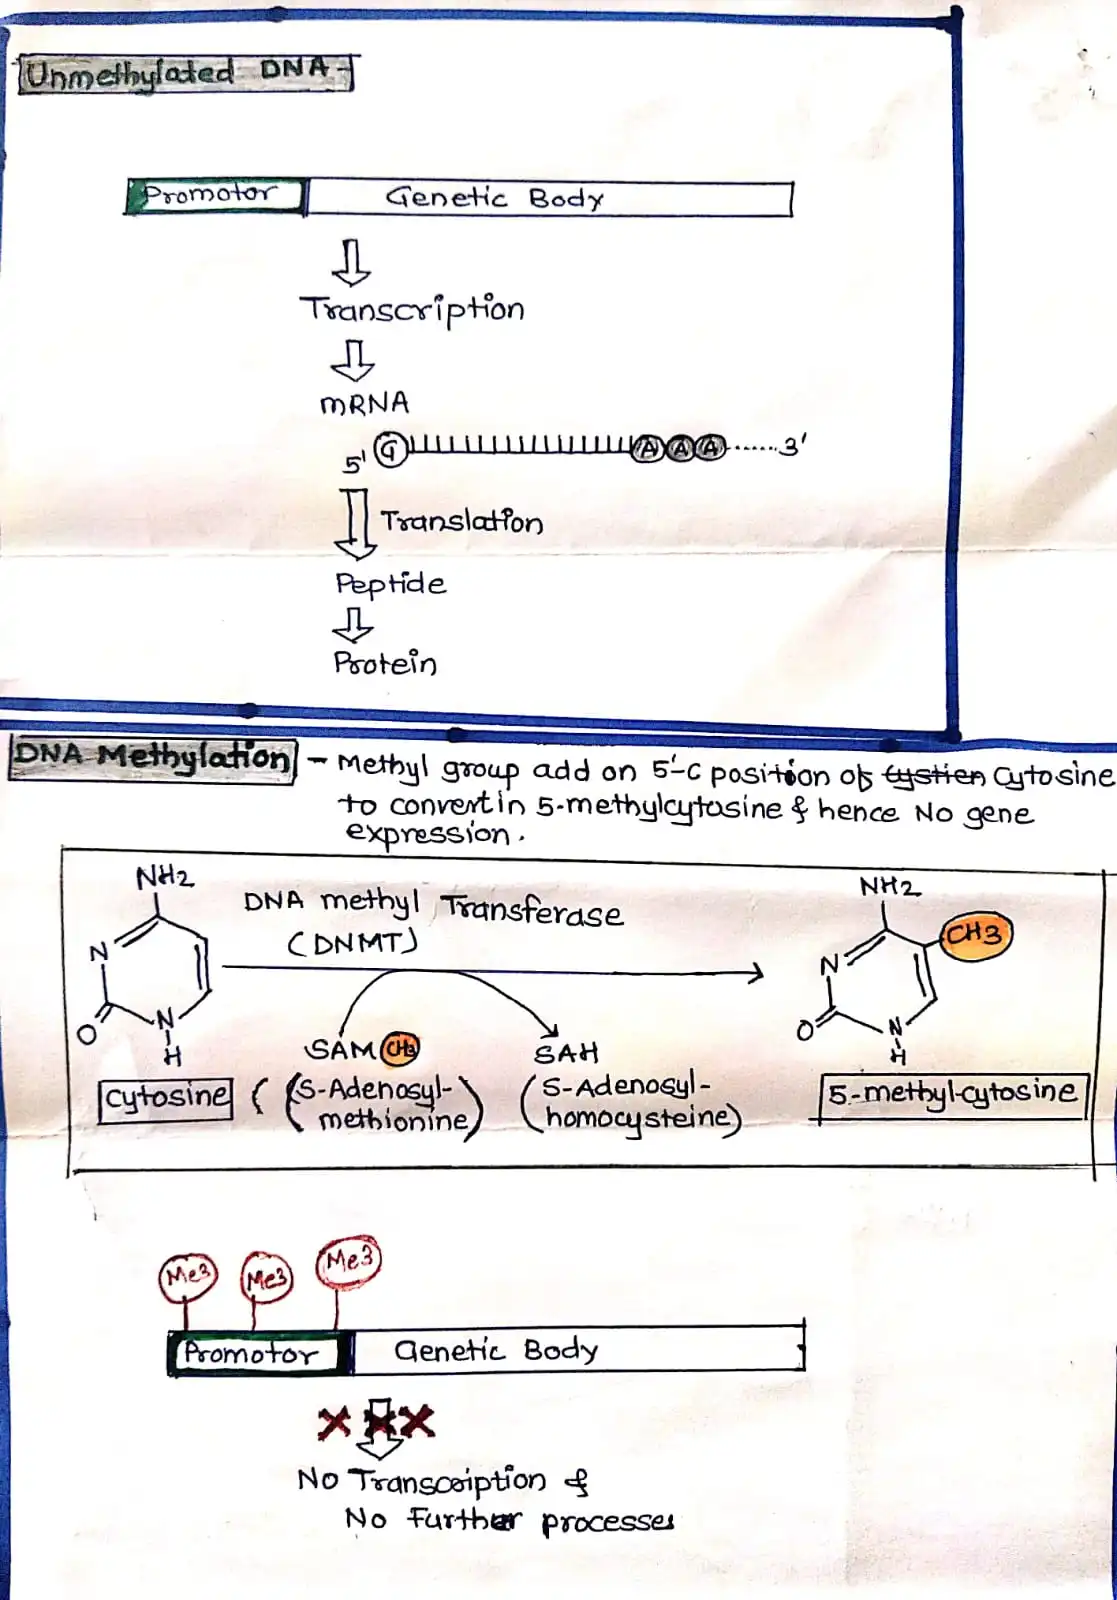 Unmethylated DNA-
Promotor Genetic Body
Transcription
mRNA
5' G A A A ...... 3'
Translation
Peptide
Protein
DNA Methylation - Methyl group add on 5'-C position of cystien Cytosine
to convert in 5-methylcytosine & hence No gene
expression.
NH2
N
O
N
H
Cytosine
DNA methyl Transferase
(DNMT)
SAM CH3
(S-Adenosyl-
methionine)
SAH
(S-Adenosyl-
homocysteine)
NH2
CH3
N
O
N
H
5-methyl-cytosine
Me3 Me3 Me3
Promotor Genetic Body
No Transcription &
No Further processes